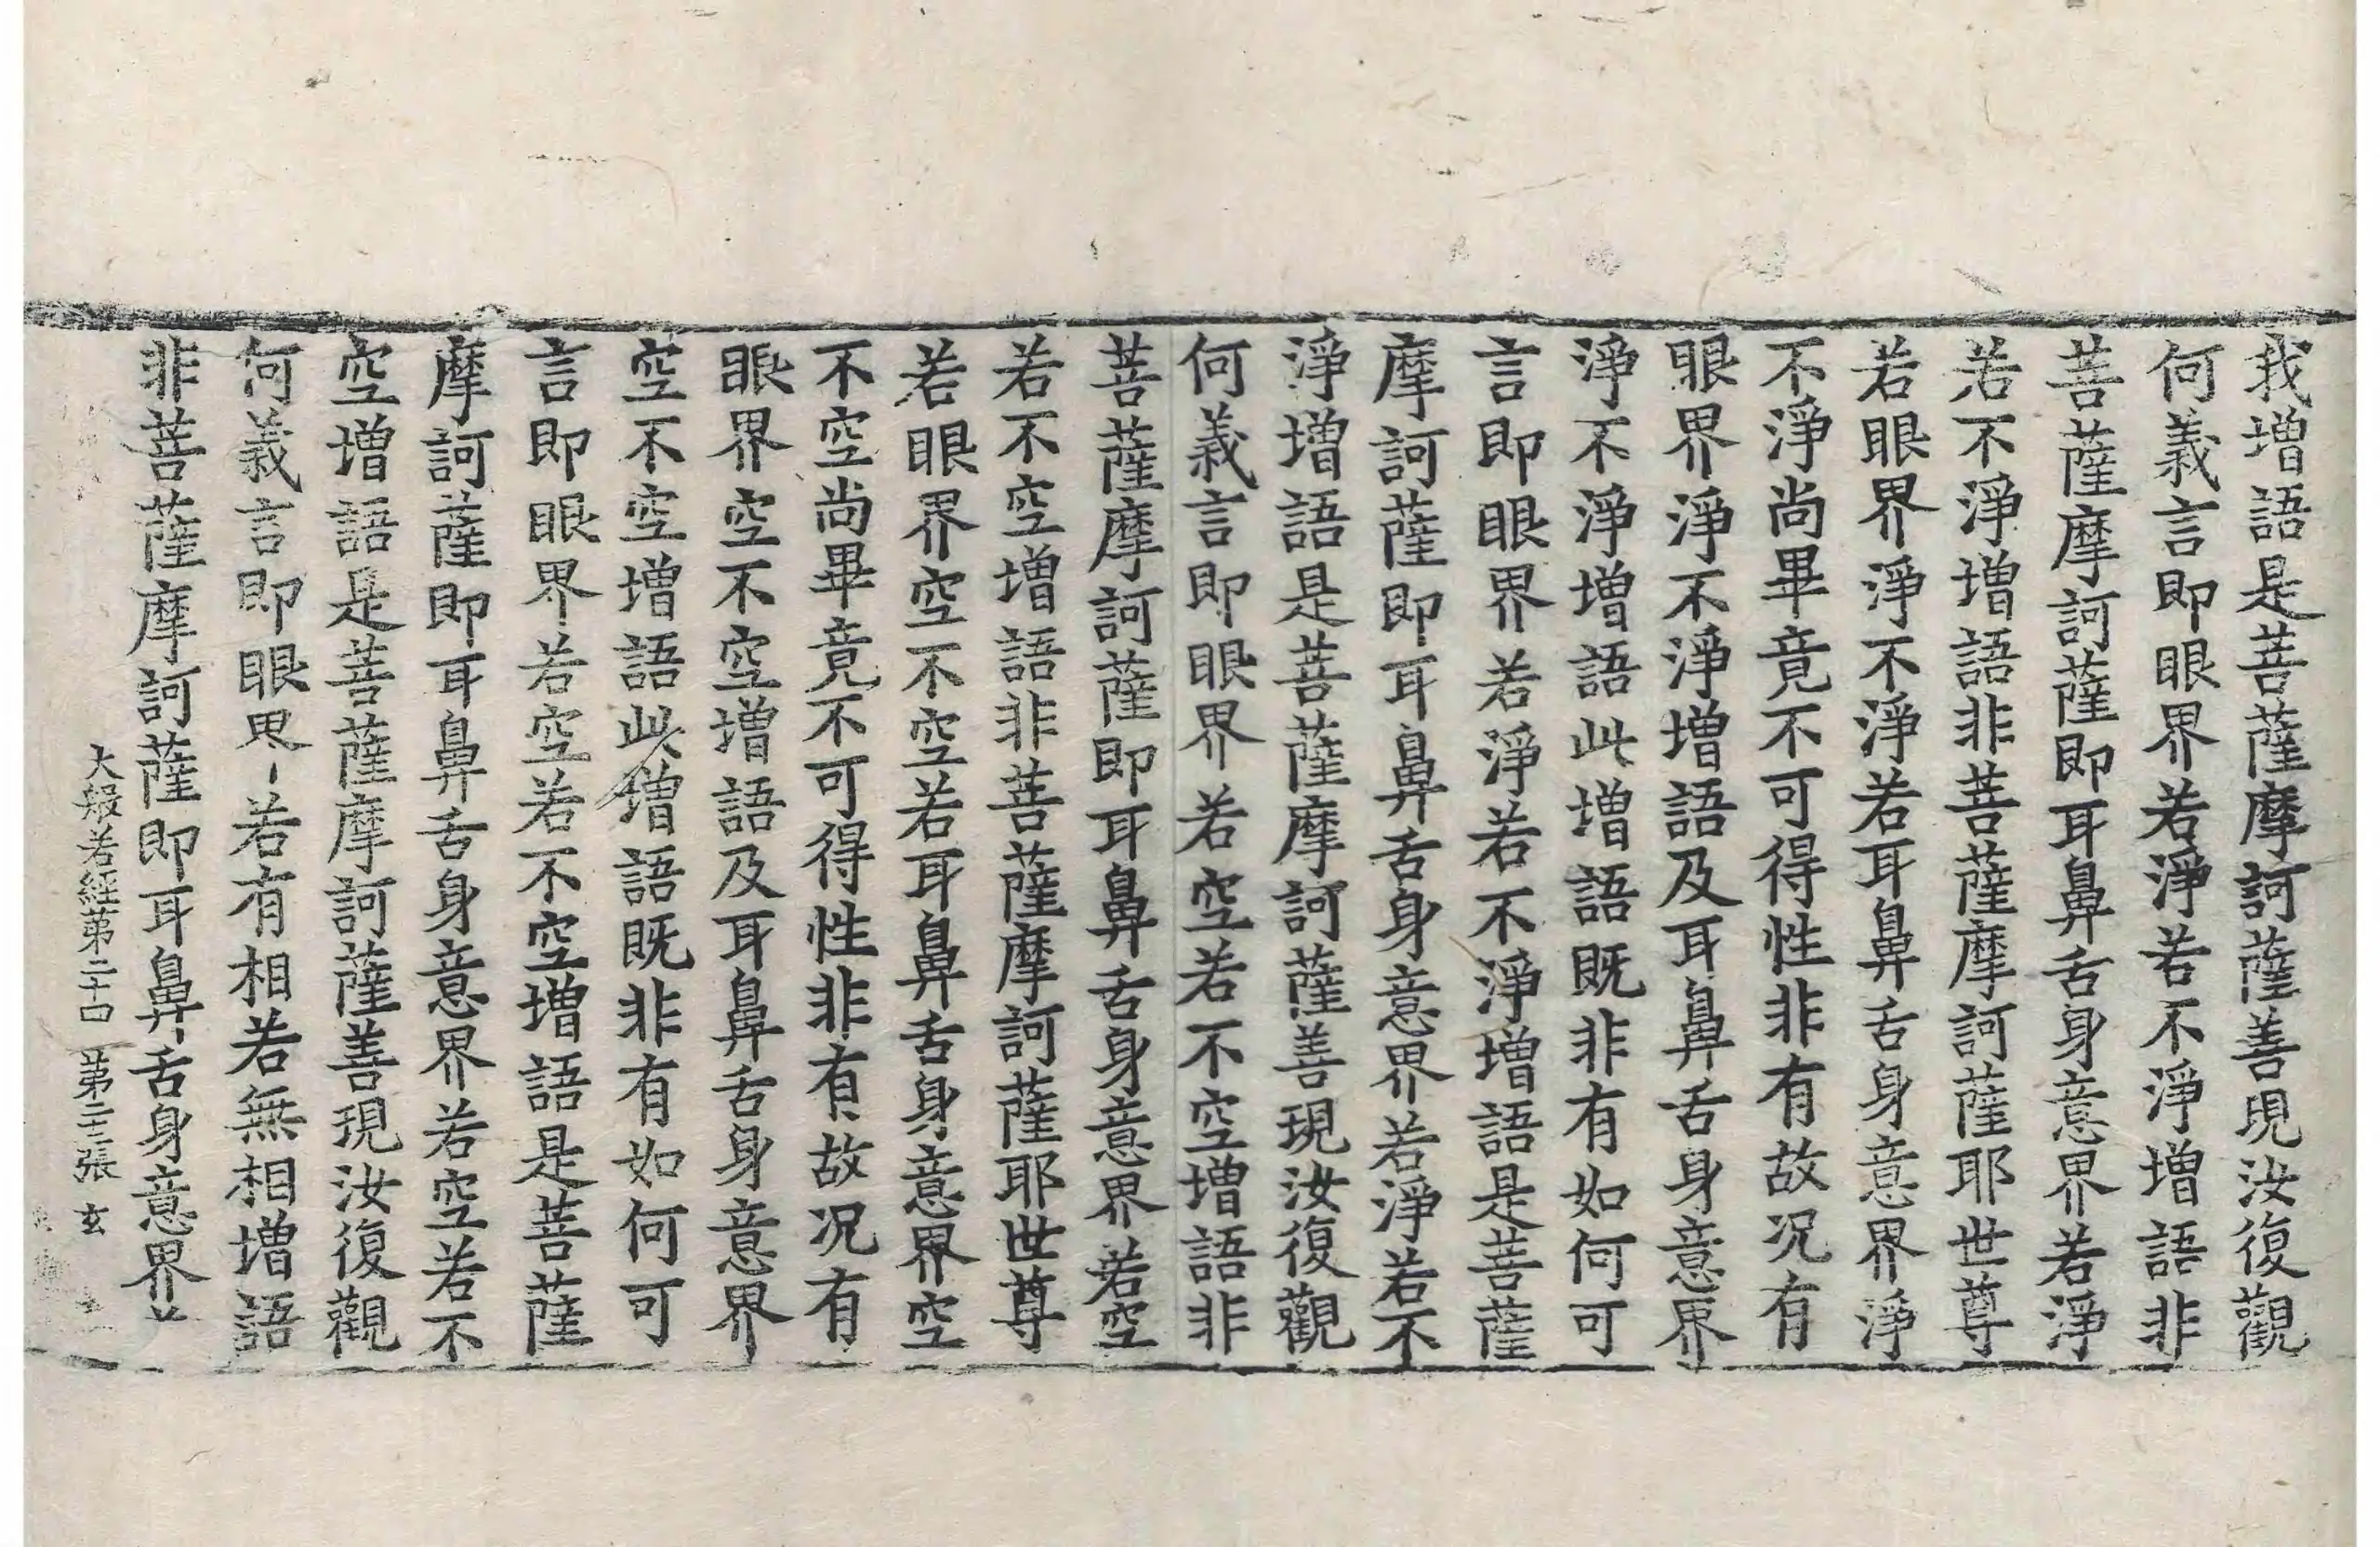 我增語是菩薩摩訶薩善現汝復觀
何義言即眼界若淨若不淨增語非
菩薩摩訶薩即耳鼻舌身意界若淨
若不淨增語非菩薩摩訶薩耶世尊
若眼界淨不淨若耳鼻舌身意界淨
不淨尚畢竟不可得性非有故况有
眼界淨不淨增語及耳鼻舌身意界
淨不淨增語此增語既非有如何可
言即眼界若淨若不淨增語是菩薩
摩訶薩即耳鼻舌身意界若淨若不
淨增語是菩薩摩訶薩善現汝復觀
何義言即眼界若空若不空增語非
菩薩摩訶薩即耳鼻舌身意界若空
若不空增語非菩薩摩訶薩耶世尊
若眼界空不空若耳鼻舌身意界空
不空尚畢竟不可得性非有故况有
眼界空不空增語及耳鼻舌身意界
空不空增語此增語既非有如何可
言即眼界若空若不空增語是菩薩
摩訶薩即耳鼻舌身意界若空若不
空增語是菩薩摩訶薩善現汝復觀
何義言即眼界若有相若無相增語
非菩薩摩訶薩即耳鼻舌身意界
大般若經第二十四 第二十二張 玄